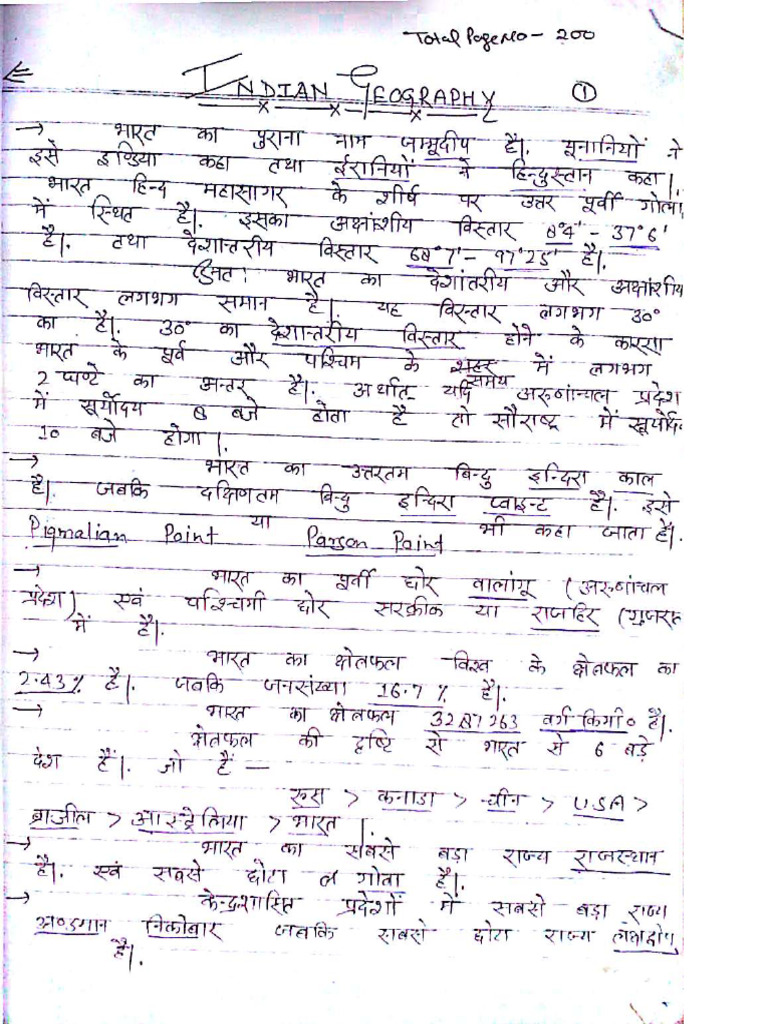 Total Page No - 200
INDIAN GEOGRAPHY ①
→ भारत का पुराना नाम जम्मूदीप है। यूनानियों ने
इसे इण्डिया कहा तथा ईरानियों ने हिन्दुस्तान कहा।
भारत हिन्द महासागर के शीर्ष पर उत्तर पूर्वी गोला
में स्थित है। इसका अक्षांशीय विस्तार 8°4' - 37°6'
है। तथा देशान्तरीय विस्तार 68°7' - 97°25' है।
भारत का देशांतरीय और अक्षांशीय
विस्तार लगभग समान है। यह विस्तार लगभग 30°
का है। 30° का देशान्तरीय विस्तार होने के कारण
भारत के पूर्व और पश्चिम के समय में लगभग
2 घण्टे का अन्तर है। अर्थात यदि अरुणांचल प्रदेश
में सूर्योदय 8 बजे होता है तो सौराष्ट्र में सूर्योद
10 बजे होगा।
→ भारत का उत्तरतम बिन्दु इन्दिरा काल
है। जबकि दक्षिणतम बिन्दु इन्दिरा प्वाइन्ट है। इसे
Pigmalian Point या Parson Point भी कहा जाता है।
→ भारत का पूर्वी छोर वालांगू (अरुणांचल
प्रदेश) एवं पश्चिमी छोर सरक्रीक या राजहिर (गुजरा
में है।
→ भारत का क्षेत्रफल विश्व के क्षेत्रफल का
2.43% है। जबकि जनसंख्या 16.7% है।
→ भारत का क्षेत्रफल 3287263 वर्ग किमी० है।
क्षेत्रफल की दृष्टि से भारत से 6 बड़े
देश हैं। जो हैं —
रूस > कनाडा > चीन > U.S.A >
ब्राजील > आस्ट्रेलिया > भारत।
→ भारत का सबसे बड़ा राज्य राजस्थान
है। एवं सबसे छोटा ल गोवा है।
→ केन्द्रशासित प्रदेशों में सबसे बड़ा राज्य
अण्डमान निकोबार जबकि सबसे छोटा राज्य लक्षद्वीप
है।